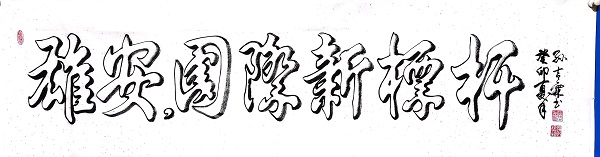 雄安,國際新標杆
孙吉书
癸卯夏月